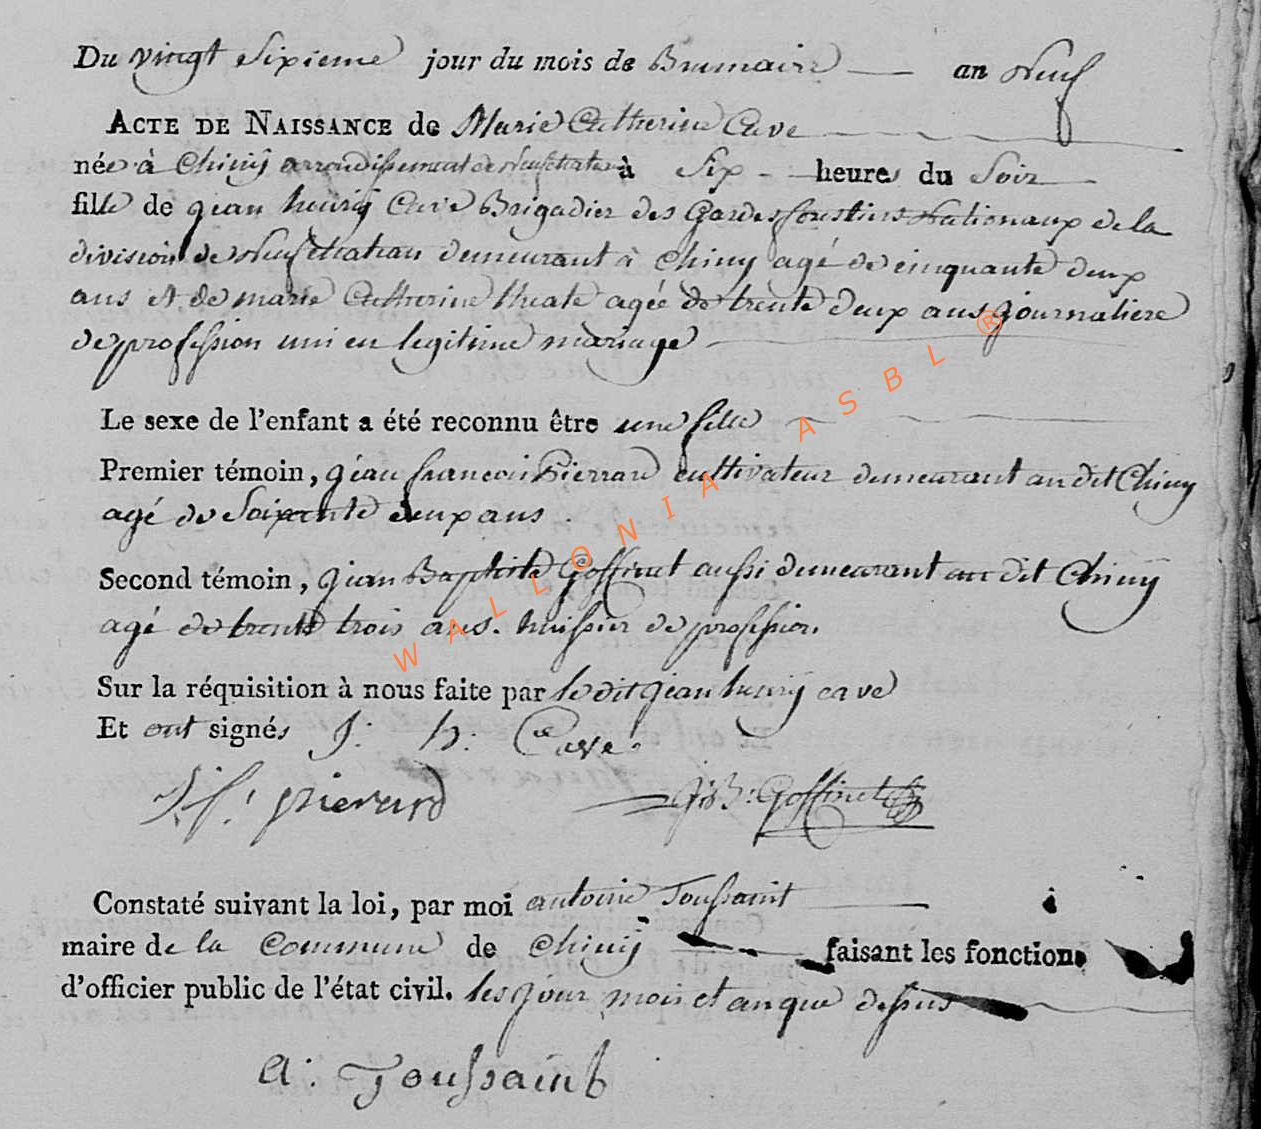 Du vingt sixieme jour du mois de Brumaire an Neuf
ACTE DE NAISSANCE de Marie Catherine Cave
née à Chiny arrondissement de Neufchateau à Six heures du Soir
fille de jean henrÿ Cave Brigadier des Gardes forestiers Nationaux de la
division de Neufchatau demeurant à Chiny agé de cinquante deux
ans et de marie Catherine agée de trente deux ans journaliere
de profession uni en legitime mariage
Le sexe de l'enfant a été reconnu être une fille
Premier témoin, jean francois Pierrard cultivateur demeurant au dit Chiny
agé de Soixante deux ans.
Second témoin, jean Baptiste Goffinet aussi demeurant au dit Chinÿ
agé de trente trois ans. huissier de profession.
Sur la réquisition à nous faite par le dit jean henrÿ cave
Et ont signés J: h: Cave.
J: f: pierard J:B: Goffinet
Constaté suivant la loi, par moi antoine Toussaint
maire de la Commune de Chinÿ faisant les fonctions
d'officier public de l'état civil. les jour mois et an que dessus
a: Toussaint
WALLONIA ASBL ®